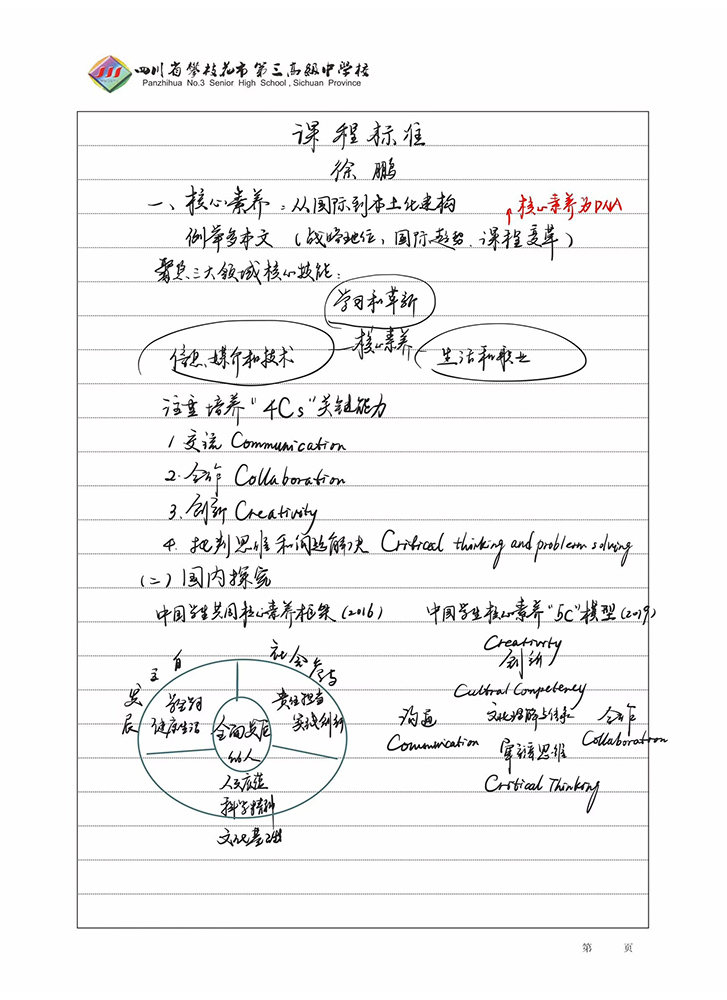 四川省攀枝花市第三高级中学校
Panzhihua No.3 Senior High School , Sichuan Province
课程标准
徐鹏
一、核心素养：从国际到本土化建构
核心素养为DNA
例举多本文（战略地位、国际趋势、课程变革）
聚焦三大领域核心技能：
学习和革新
信息、媒介和技术 核心素养 生活和职业
注重培养"4Cs"关键能力
1 交流 Communication
2. 合作 Collaboration
3. 创新 Creativity
4. 批判思维和问题解决 Critical thinking and problem solving
(二)国内探究
中国学生共同核心素养框架(2016)
中国学生核心素养"5C"模型(2019)
自主发展
社会参与
学会学习
健康生活
责任担当
实践创新
全面发展
的人
人文底蕴
科学精神
文化基础
Creativity
创新
Cultral Competency
文化理解与传承
沟通
Communication
合作
Collaboration
审辩思维
Critical Thinking
第 页